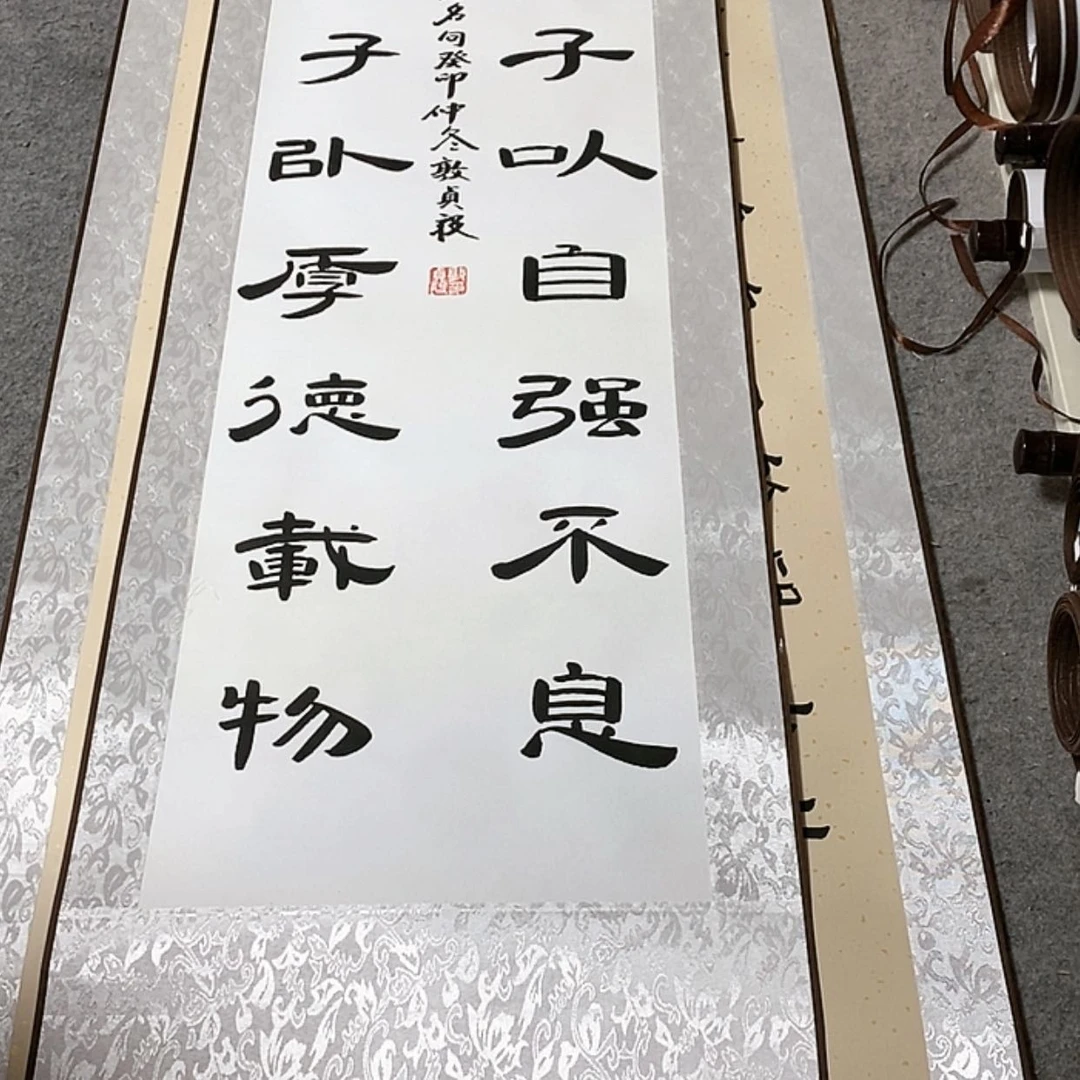 子以自强不息
子以厚德載物
名句癸卯仲冬敦貞